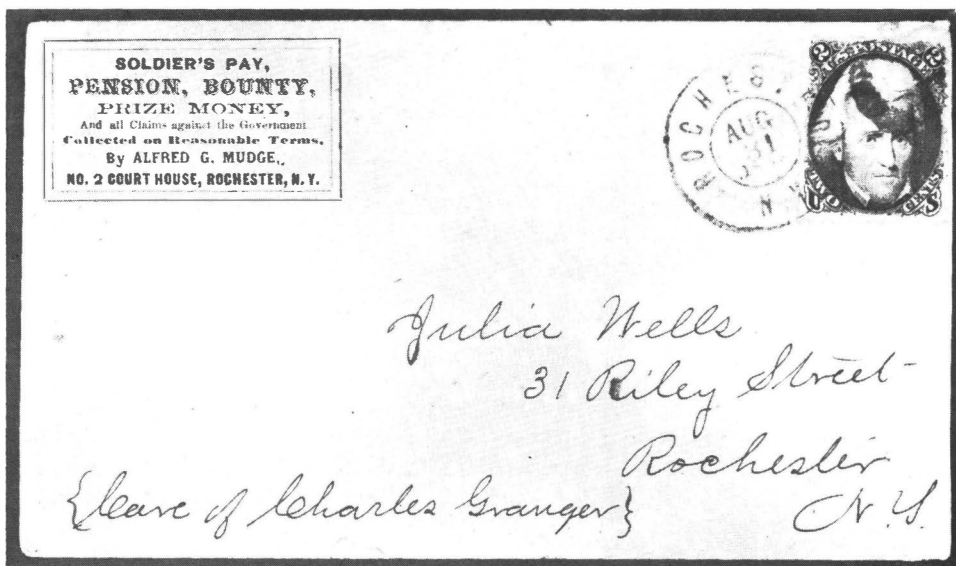 SOLDIER'S PAY,
PENSION, BOUNTY,
PRIZE MONEY,
And all Claims against the Government
Collected on Reasonable Terms,
By ALFRED G. MUDGE,
NO. 2 COURT HOUSE, ROCHESTER, N. Y.
ROCHES
N
AUG
31
2 2
U S
Julia Wells
31 Riley Street
Rochester
N. Y.
{Care of Charles Granger}